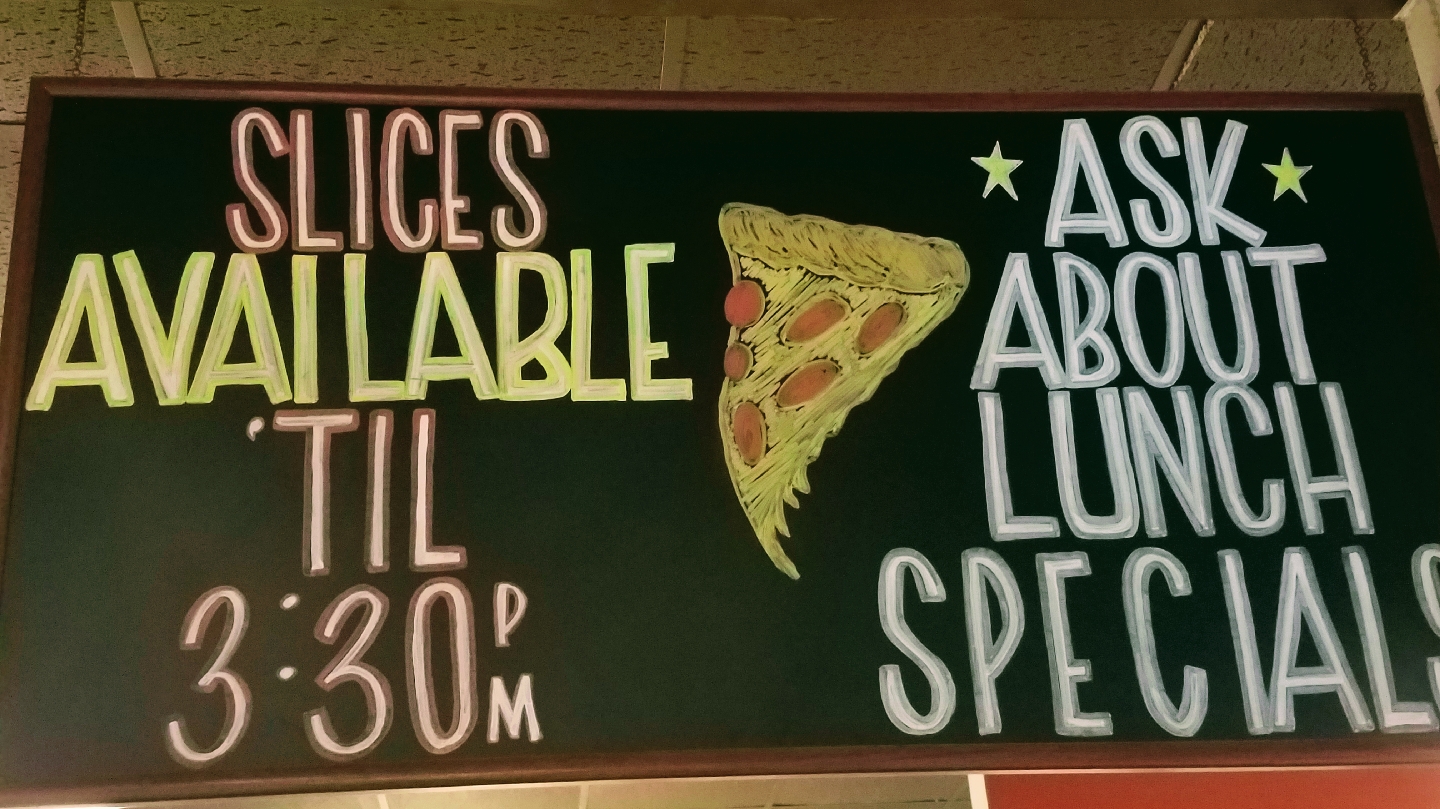 SLICES
AVAILABLE
'TIL
3:30PM
ASK
ABOUT
LUNCH
SPECIALS